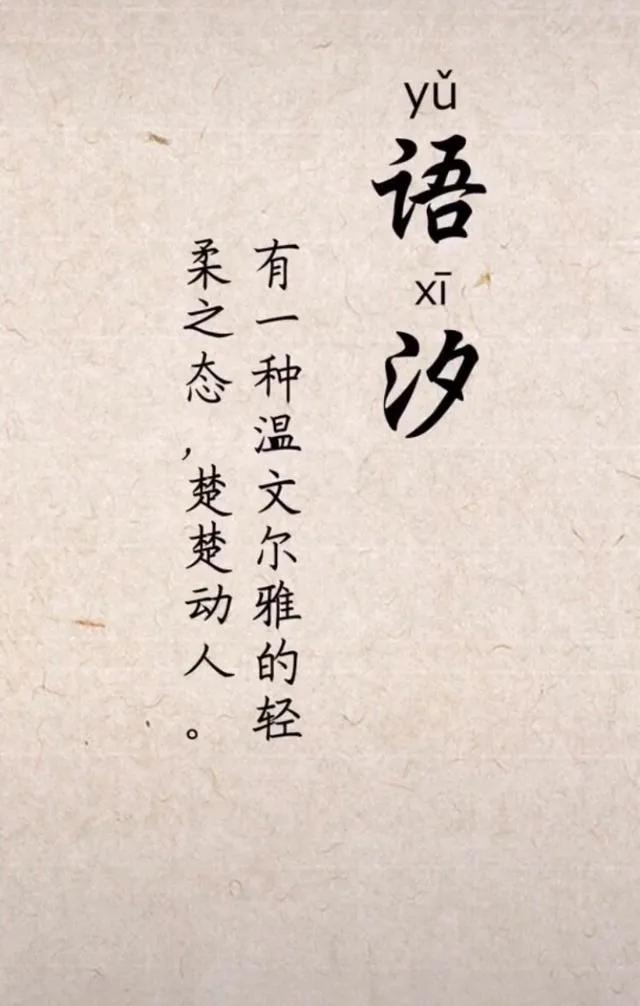 yǔ
语
xī
汐
有一种温文尔雅的轻
柔之态,楚楚动人。